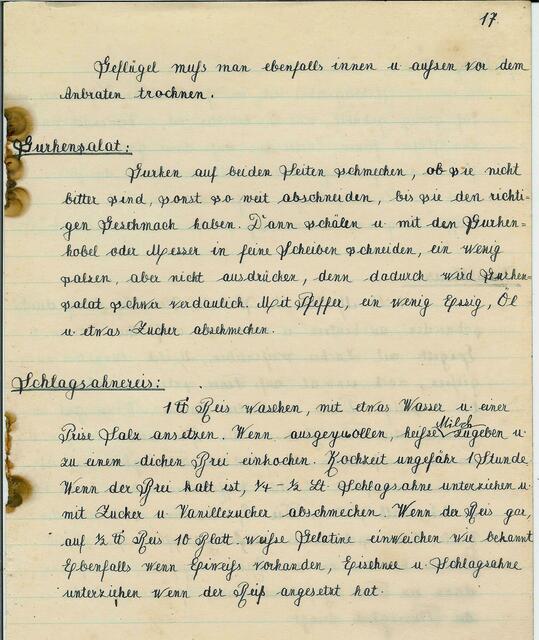 17
Geflügel muß man ebenfalls innen u außen vor dem
Anbraten trocknen.
Gurkensalat:
Gurken auf beiden Seiten schmecken, ob sie nicht
bitter sind, sonst so weit abschneiden, bis sie den richti-
gen Geschmack haben. Dann schälen u mit den Gurken=
hobel oder Messer in feine Scheiben schneiden, ein wenig
salzen, aber nicht ausdrücken, denn dadurch wird Gurken-
salat schwer verdaulich. Mit Pfeffer, ein wenig Essig, Öl
u. etwas Zucker abschmecken.
Schlagsahnereis:
1 ℔ Reis waschen, mit etwas Wasser u. einer
Prise Salz ansetzen. Wenn ausgequollen, heiße Milch zugeben u.
zu einem dicken Brei einkochen. Kochzeit ungefähr 1 Stunde
Wenn der Brei kalt ist, ¼ - ½ Lt. Schlagsahne unterziehen u.
mit Zucker u Vanillezucker abschmecken. Wenn der Reis gar,
auf ½ ℔ Reis 10 Blatt weiße Gelatine einweichen wie bekannt
Ebenfalls wenn Eiweiß vorhanden, Eischnee u. Schlagsahne
unterziehen wenn der Reiß angesetzt hat.